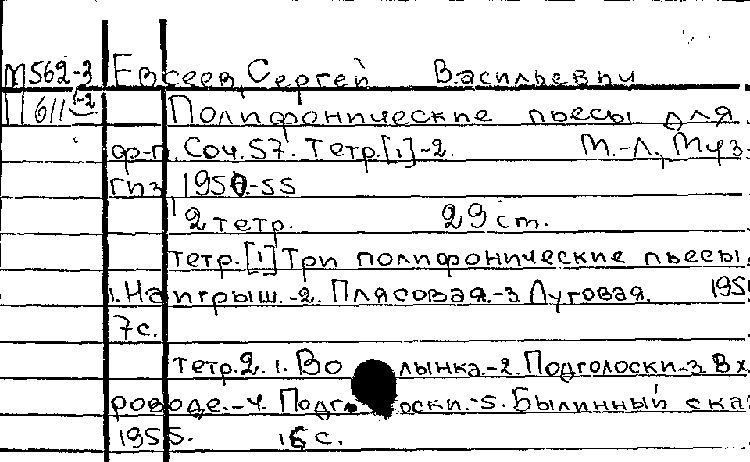 М562-3 Евсеев, Сергей Васильевич
П611 1-2 Полифонические пьесы для
ф-п. Соч. 57. Тетр. [1]-2. М.-Л., Муз-
гиз 1950-55
2 тетр. 29 ст.
тетр. [1] Три полифонические пьесы.
1. Наигрыш.-2. Плясовая.-3. Луговая. 195
7с.
тетр. 2. 1. Во лынка.-2. Подголоски-3. В х
роводе.-4. Подг оски.-5. Былинный сказ
1955. 15 с.